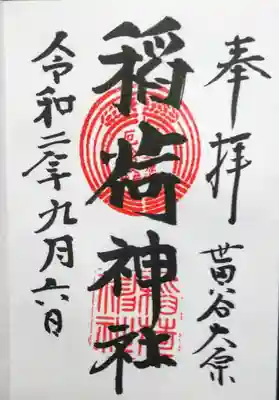 奉拝
世田谷大原
稲荷神社
令和二年九月六日